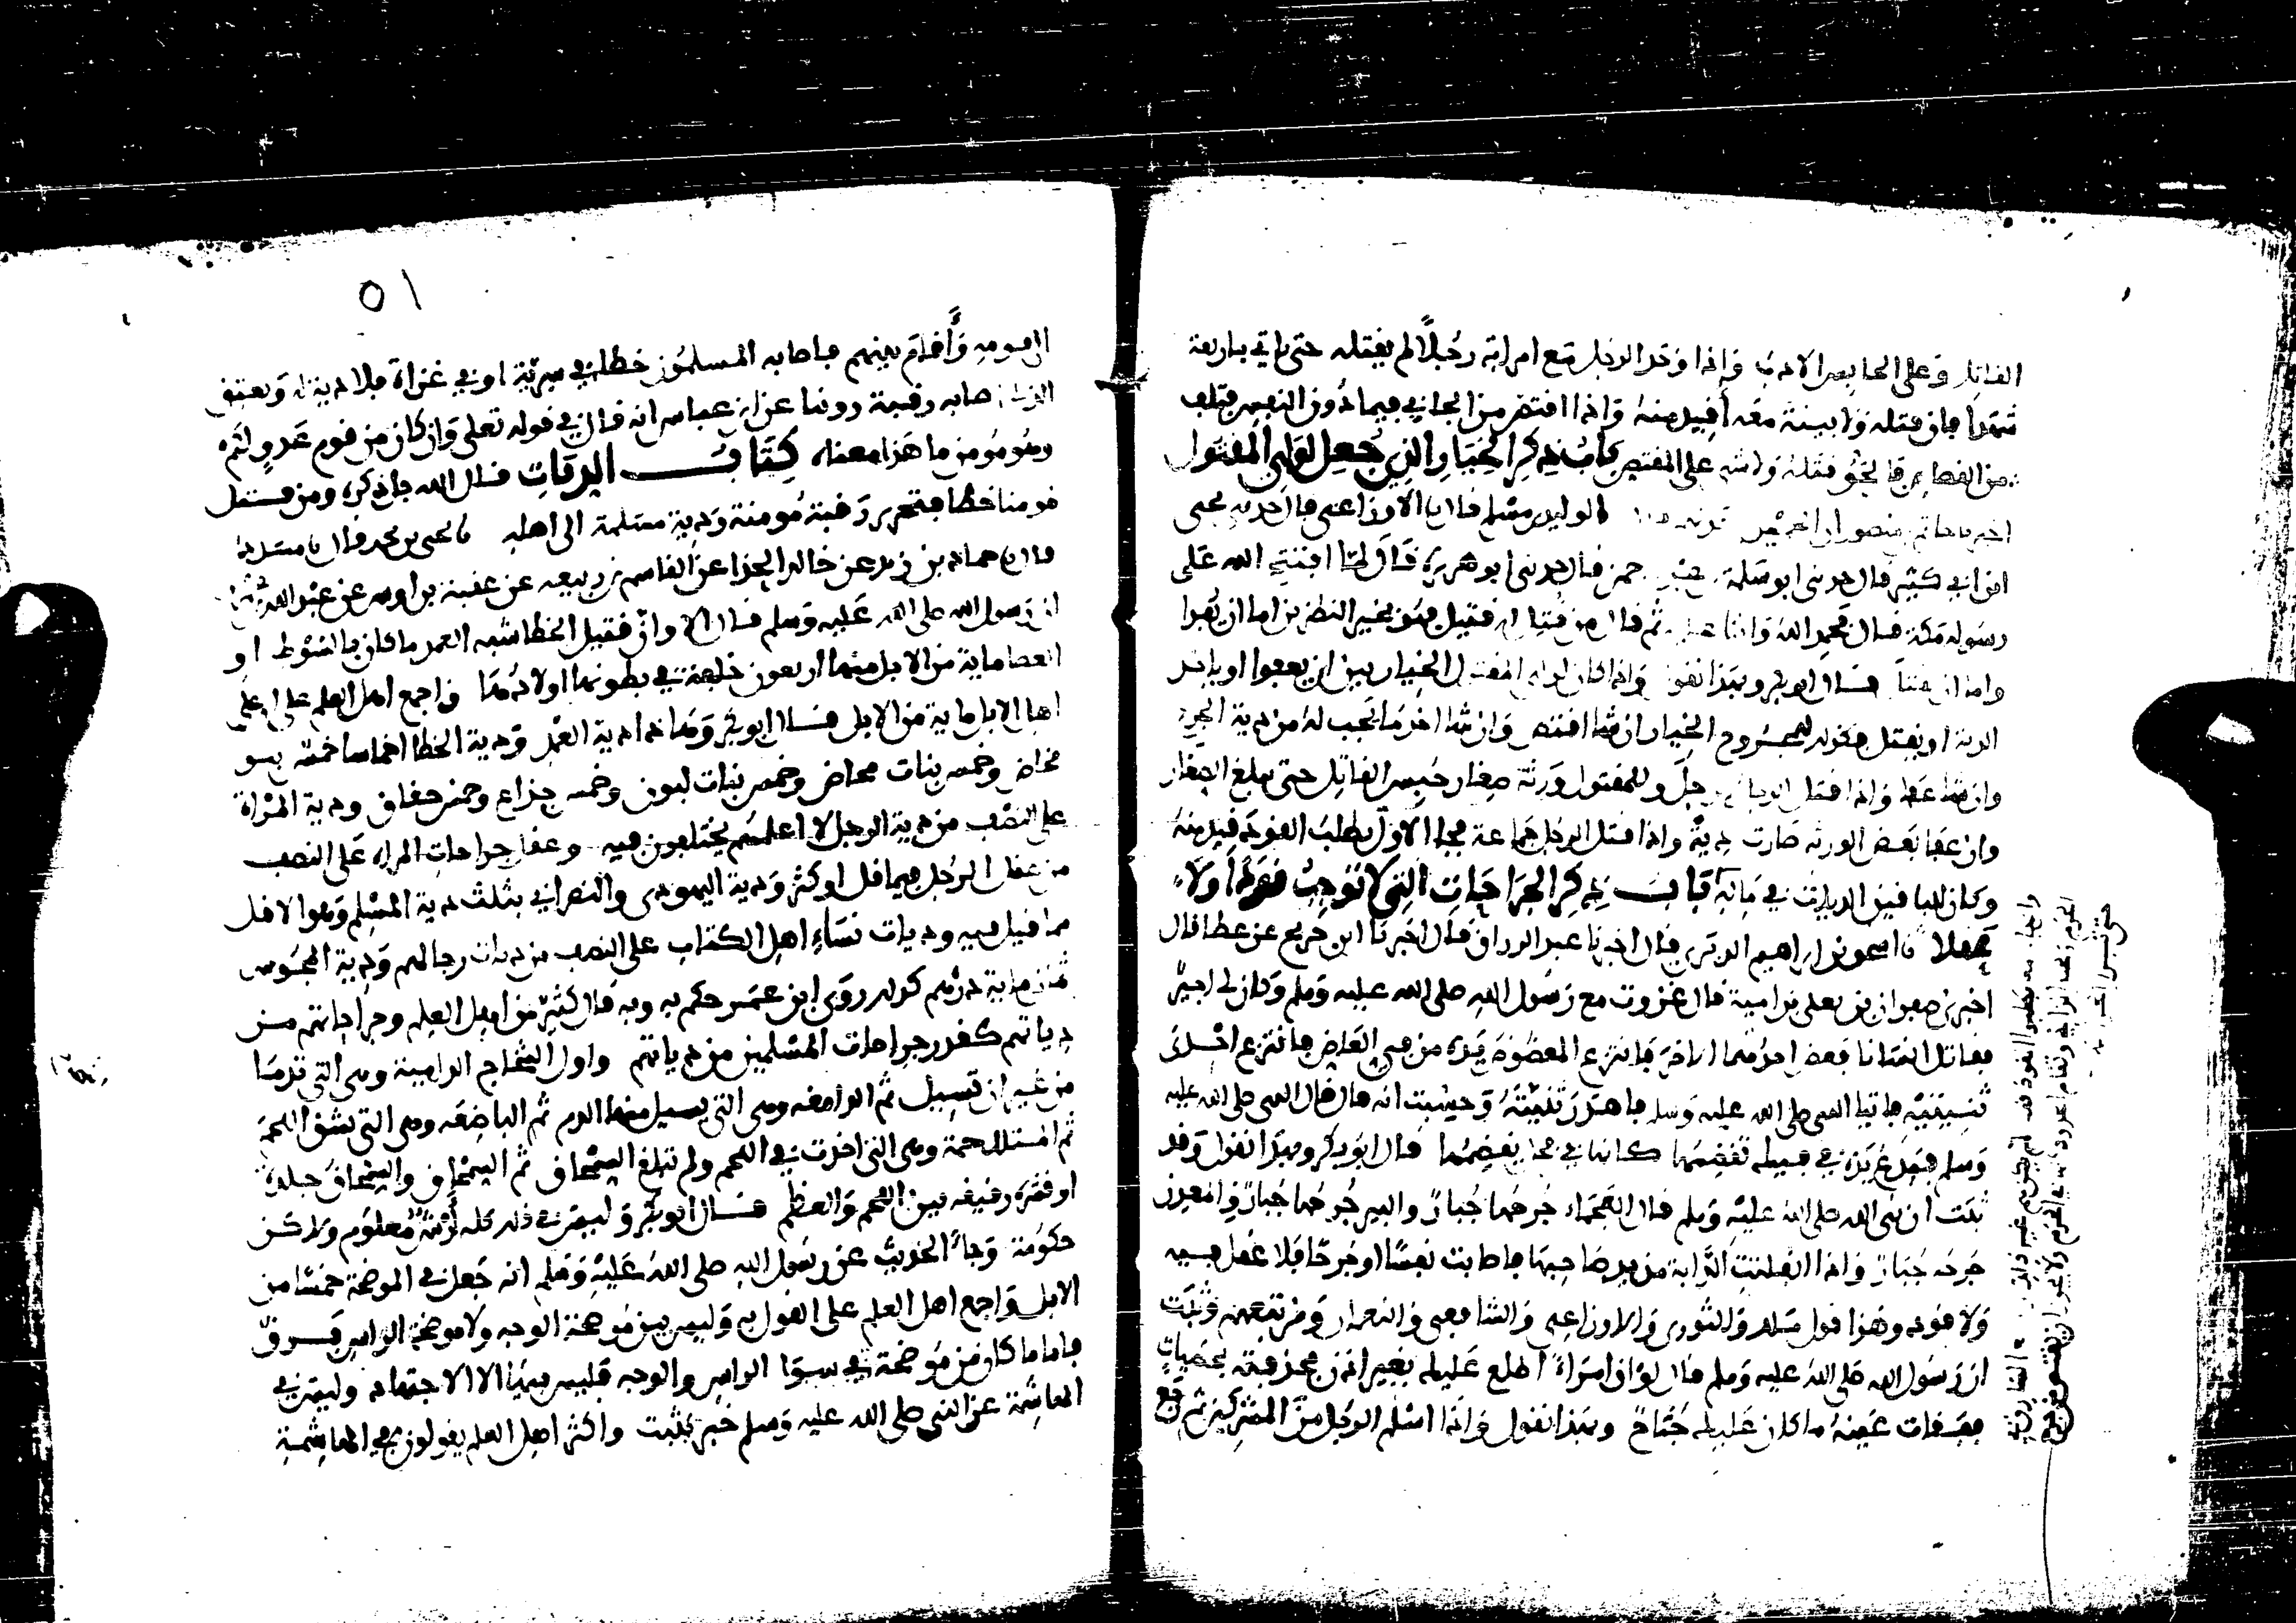 القاتل وعلى الحابس الادب واذا وجد الرجل مع امراته رجلا لم يقتله حتى ياتي باربعة
شهدا فان قتله ولا بينة معه اقيد منه واذا اقتص من الجاني فيما دون النفس فتلف
من القصاص فالحق قتله ولا شي على المقتص باب ذكر الخيار الذي جعل لولي المقتول
الوليد بن مسلم قال نا الاوزاعي قال حدثني يحيى
ابن ابي كثير قال حدثني ابو سلمة قال حدثني ابو هريرة قال لما افتتح الله على
رسوله مكة قال فحمد الله واثنا عليه ثم قال من قتل له قتيل فهو بخير النظرين اما ان يفدا
واما ان يقتل قال ابو بكر وبهذا نقول واذا كان لولي المقتول الخيار بين ان يعفوا او ياخذ
الدية او يقتل فكذلك للمجروح الخيار ان شا اقتص وان شا اخذ ما تجب له من دية الجرح
وان شا عفا واذا قتل الرجل رجل وللمقتول ورثة صغار حبس القاتل حتى يبلغ الصغار
وان عفا بعض الورثه صارت دية واذا قتل الرجل جماعة فجا الاول يطلب القود اقيد منه
وكان للباقين الديات في ماله باب ذكر الجراحات التي لا توجب قودا ولا
عقلا نا اسحق بن ابراهيم الدبري قال اخبرنا عبد الرزاق قال اخبرنا ابن جريج عن عطا قال
اخبرني صفوان بن يعلى بن امية قال غزوت مع رسول الله صلى الله عليه وسلم وكان لي اجير
فقاتل انسانا فعض احدهما الاخر فانتزع المعضوض يده من في العاض فانتزع احدى
ثنيتيه فاتيا النبي صلى الله عليه وسلم فاهدر ثنيته وحسبت انه قال قال النبي صلى الله عليه
وسلم فيدع يده في فيك تقضمها كانها في في فحل يقضمها قال ابو بكر وبهذا نقول وقد
ثبت ان نبي الله صلى الله عليه وسلم قال العجماء جرحها جبار والبير جرحها جبار والمعدن
جرحه جبار واذا انفلتت الدابة من يد صاحبها فاصابت نفسا او جرحا فلا عقل فيه
ولا قود وهذا قول ملك والثوري والاوزاعي والشافعي والنعمان ومن تبعهم وثبت
ان رسول الله صلى الله عليه وسلم قال لو ان امراء اطلع عليك بغير اذن فحذفته بحصيات
ففقات عينه ما كان عليك جناح وبهذا نقول واذا اسلم الرجل من المشركين ثم رجع
٥١
الى قومه واقام بينهم فاصابه المسلمون خطا في سرية او في غزاة فلا دية له ويعتق
الذي اصابه رقبة روينا عن ابن عباس انه قال في قوله تعلى وان كان من قوم عدو لكم
وهو مومن ما هذا معناه كتاب الديات قال الله جل ذكره ومن قتل
مومنا خطا فتحرير رقبة مومنة ودية مسلمة الى اهله نا يحيى بن محمد قال نا مسدد
قال نا حماد بن زيد عن خالد الحذا عن القاسم بن ربيعه عن عقبة بن اوس عن عبد الله
ان رسول الله صلى الله عليه وسلم قال الا وان قتيل الخطا شبه العمد ما كان بالسوط او
العصا ماية من الابل منها اربعون خلفة في بطونها اولادها واجمع اهل العلم على ان على
اهل الابل ماية من الابل قال ابو بكر ودية الخطا اخماسا خمس بنو
مخاض وخمس بنات مخاض وخمس بنات لبون وخمس جذاع وخمس حقاق ودية المراة
على النصف من دية الرجل لا اعلمهم يختلفون فيه وعقل جراحات المراه على النصف
من عقل الرجل فيما قل او كثر ودية اليهودي والنصراني بثلث دية المسلم وهو الاقل
مما قيل فيه وديات نساء اهل الكتاب على النصف من ديات رجالهم ودية المجوس
ثمان ماية درهم كذلك روى ابن عمر حكم به وبه قال كثير من اهل العلم وجراحاتهم من
دياتهم كقدر جراحات المسلمين من دياتهم واول الشجاج الدامية وهي التي تدما
من غير ان تسيل ثم الدامعه وهي التي يسيل منها الدم ثم الباضعه وهي التي تشق اللحم
ثم المتلاحمة وهي التي اخذت في اللحم ولم تبلغ السمحاق ثم السمحاق والسمحاق جلدة
او قشرة رقيقه بين اللحم والعظم قال ابو بكر وليس في ذلك كله ارش معلوم ولاكن
حكومة وجا الحديث عن رسول الله صلى الله عليه وسلم انه جعل في الموضحة خمسا من
الابل واجمع اهل العلم على القول به وليس بين موضحة الوجه ولا موضحة الراس فرق
فاما ما كان من موضحة في سوا الراس والوجه فليس فيها الا الاجتهاد وليس في
الهاشمة عن النبي صلى الله عليه وسلم خبر يثبت واكثر اهل العلم يقولون في الهاشمة